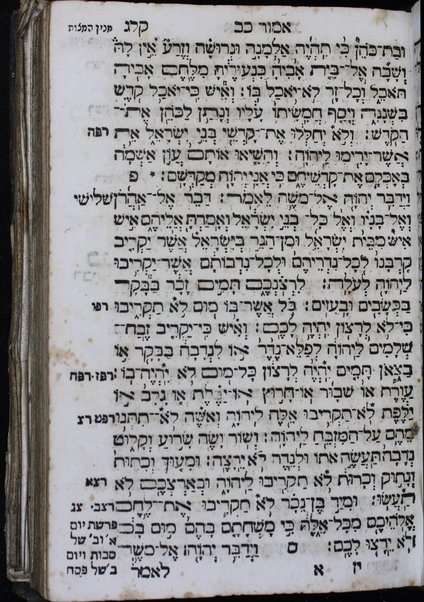 מנין המצות
קלג
אמור כב
ובת־כהן כי תהיה אלמנה וגרושה וזרע אין לה
ושבה אל־בית אביה כנעוריה מלחם אביה
תאכל וכל־זר לא־יאכל בו: ואיש כי־יאכל קדש
בשגגה ויסף חמשיתו עליו ונתן לכהן את־
הקדש: ולא יחללו את־קדשי בני ישראל את רפה
אשר־ירימו ליהוה: והשיאו אותם עון אשמה
באכלם את־קדשיהם כי אני יהוה מקדשם: פ
וידבר יהוה אל־משה לאמר: דבר אל־אהרן שלישי
ואל־בניו ואל כל־בני ישראל ואמרת אליהם איש
איש מבית ישראל ומן־הגר בישראל אשר יקריב
קרבנו לכל־נדריהם ולכל־נדבותם אשר־יקריבו
ליהוה לעלה: לרצנכם תמים זכר בבקר
בכשבים ובעזים: כל אשר־בו מום לא תקריבו רפו
כי־לא לרצון יהיה לכם: ואיש כי־יקריב זבח־
שלמים ליהוה לפלא־נדר או לנדבה בבקר או
בצאן תמים יהיה לרצון כל־מום לא יהיה־בו: רפז·רפח
עורת או שבור או־חרוץ או־יבלת או גרב או
ילפת לא־תקריבו אלה ליהוה ואשה לא־תתנו רפט רצ
מהם על־המזבח ליהוה: ושור ושה שרוע וקלוט
נדבה תעשה אתו ולנדר לא ירצה: ומעוך וכתות
ונתוק וכרות לא תקריבו ליהוה ובארצכם לא רצא
תעשו: ומיד בן־נכר לא תקריבו את־לחם רצב· צג
אלהיכם מכל־אלה כי משחתם בהם מום בם פרשת יום
לא ירצו לכם: ס וידבר יהוה אל־משה
א׳וב׳ של
סכות ויום
ב׳של פסח
לאמר
א
יז